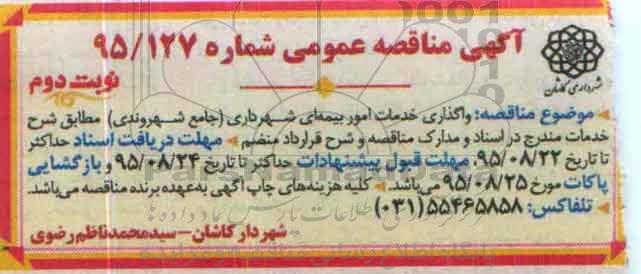 آگهی مناقصه عمومی شماره ۹۵/۱۲۷
شهرداری کاشان
نوبت دوم
موضوع مناقصه: واگذاری خدمات امور بیمه‌ای شهرداری (جامع شهروندی) مطابق شرح
خدمات مندرج در اسناد و مدارک مناقصه و شرح قرارداد منضم مهلت دریافت اسناد حداکثر
تا تاریخ ۹۵/۰۸/۲۲، مهلت قبول پیشنهادات حداکثر تا تاریخ ۹۵/۰۸/۲۴ و بازگشایی
پاکات مورخ ۹۵/۰۸/۲۵ می‌باشد. کلیه هزینه‌های چاپ آگهی به عهده برنده مناقصه می‌باشد.
تلفاکس: ۵۵۴۶۵۸۵۸ (۰۳۱)
شهردار کاشان – سیدمحمد ناظم رضوی